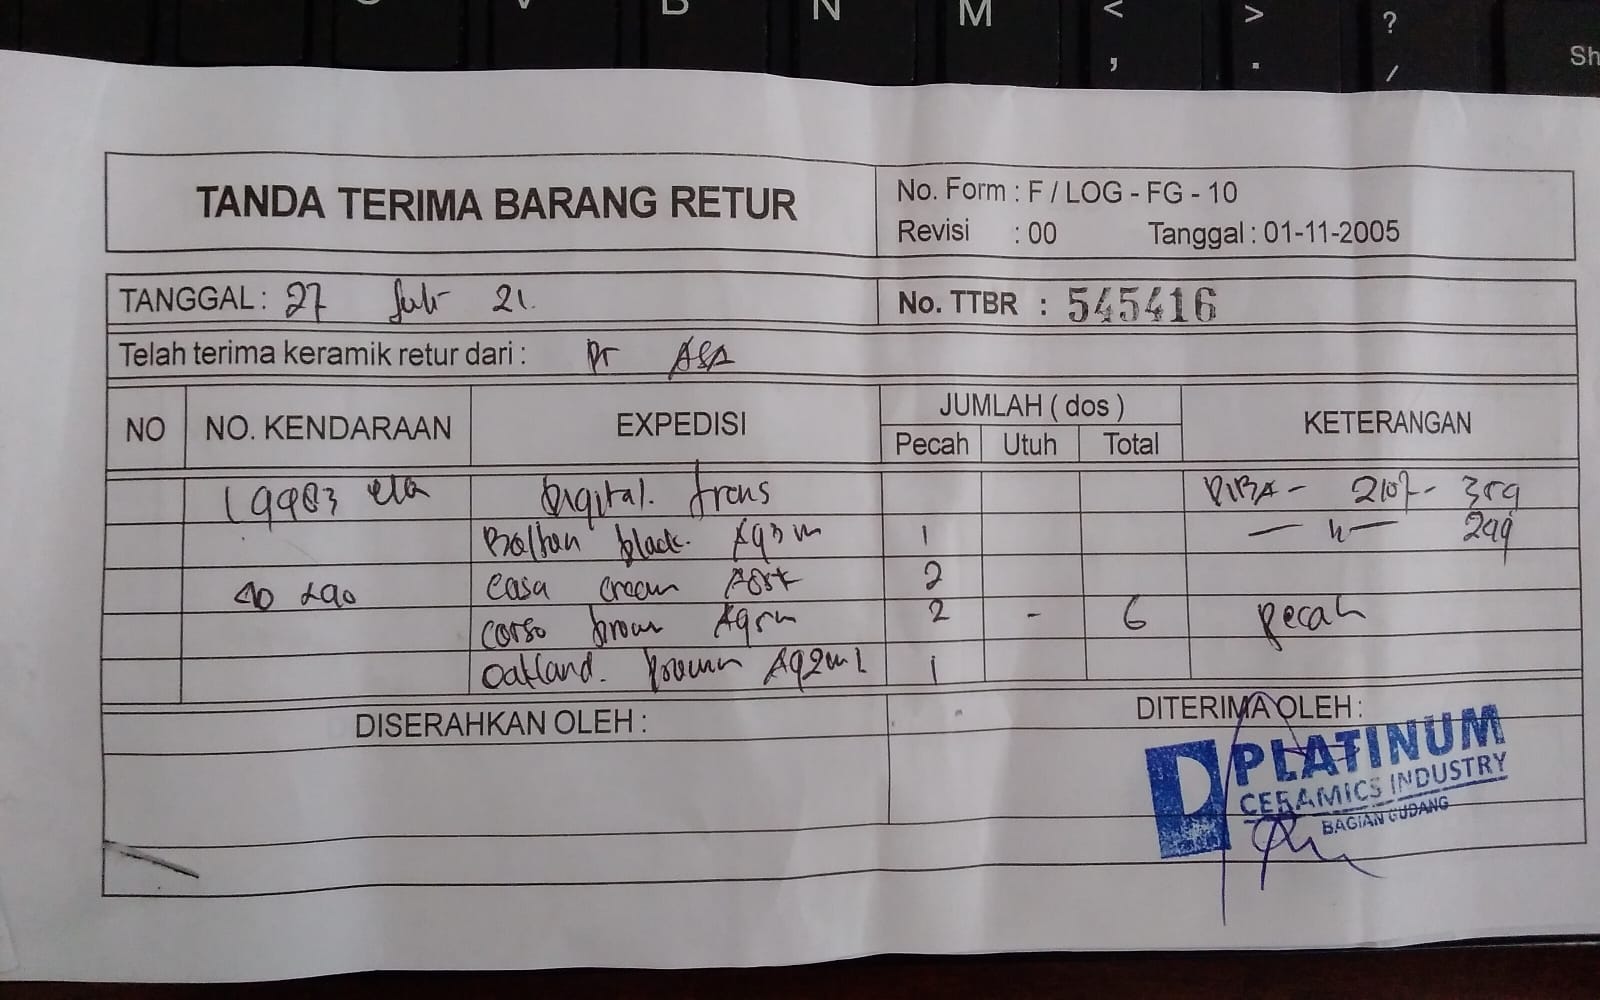 V B N M < > ?
, . / Sh
TANDA TERIMA BARANG RETUR
No. Form : F / LOG - FG - 10
Revisi : 00 Tanggal : 01-11-2005
TANGGAL : 27 Juli 21.
No. TTBR : 545416
Telah terima keramik retur dari : PT ASA
NO NO. KENDARAAN EXPEDISI JUMLAH ( dos ) KETERANGAN
Pecah Utuh Total
L 9983 Digital. trans 2107 - 359
black. 1 299
Casa cream 2
Corso brown 2 - 6 pecah
Oakland. brown 1
DISERAHKAN OLEH :
DITERIMA OLEH :
PLATINUM
CERAMICS INDUSTRY
BAGIAN GUDANG